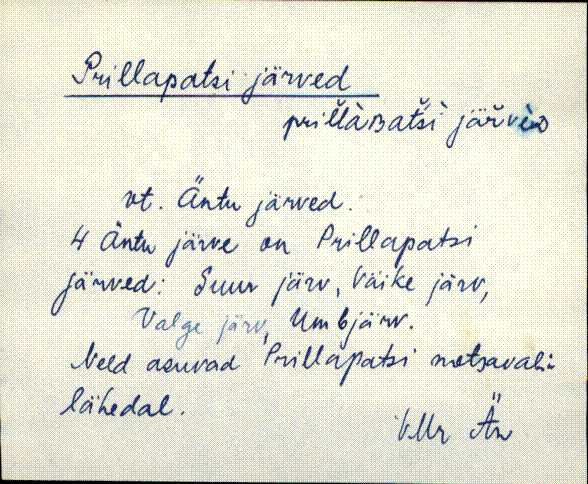 Prillapatsi järved
prillaʙatsi järveᴅ
vt. Äntu järved.
4 Äntu järve on Prillapatsi
järved: Suur järv, Väike järv,
Valge järv, Umbjärv.
Neld asuvad Prillapatsi metsavahi
lähedal.
VMr Än